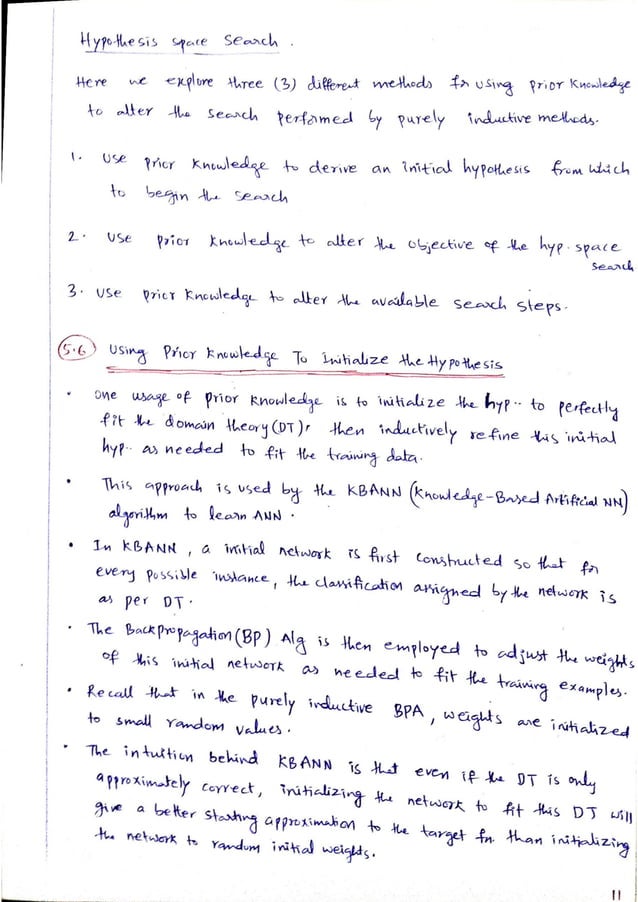 Hypothesis space search.
Here we explore three (3) different methods for using prior knowledge
to alter the search performed by purely inductive methods.
1. Use prior knowledge to derive an initial hypothesis from which
to begin the search
2. Use prior knowledge to alter the objective of the hyp. space
search
3. Use prior knowledge to alter the available search steps.
5.6 Using Prior Knowledge To Initialize the Hypothesis
• One usage of prior knowledge is to initialize the hyp.. to perfectly
fit the domain theory (DT), then inductively refine this initial
hyp.. as needed to fit the training data.
• This approach is used by the KBANN (Knowledge-Based Artificial NN)
algorithm to learn ANN.
• In KBANN, a initial network is first constructed so that for
every possible instance, the classification assigned by the network is
as per DT.
• The Backpropagation (BP) Alg is then employed to adjust the weights
of this initial network as needed to fit the training examples.
• Recall that in the purely inductive BPA, weights are initialized
to small random values.
• The intuition behind KBANN is that even if the DT is only
approximately correct, initializing the network to fit this DT will
give a better starting approximation to the target fn. than initializing
the network to random initial weights.
11